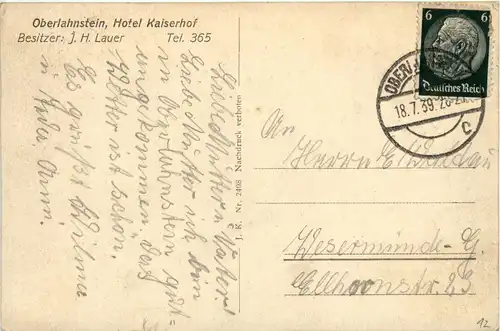 Oberlahnstein, Hotel Kaiserhof
Besitzer: J. H. Lauer Tel. 365
Liebe Mutter u. Vater!
Liebe Mutter ich bin
in Oberlahnstein gut
angekommen. Das
Wetter ist schön.
Es grüßt Wilma
u.
I. K. Nr. 2408 Nachdruck verboten
6 6
Deutsches Reich
18.7.39.
c
An
Herrn E.
Wesermünde-G.
Ellhornstr. 23
12